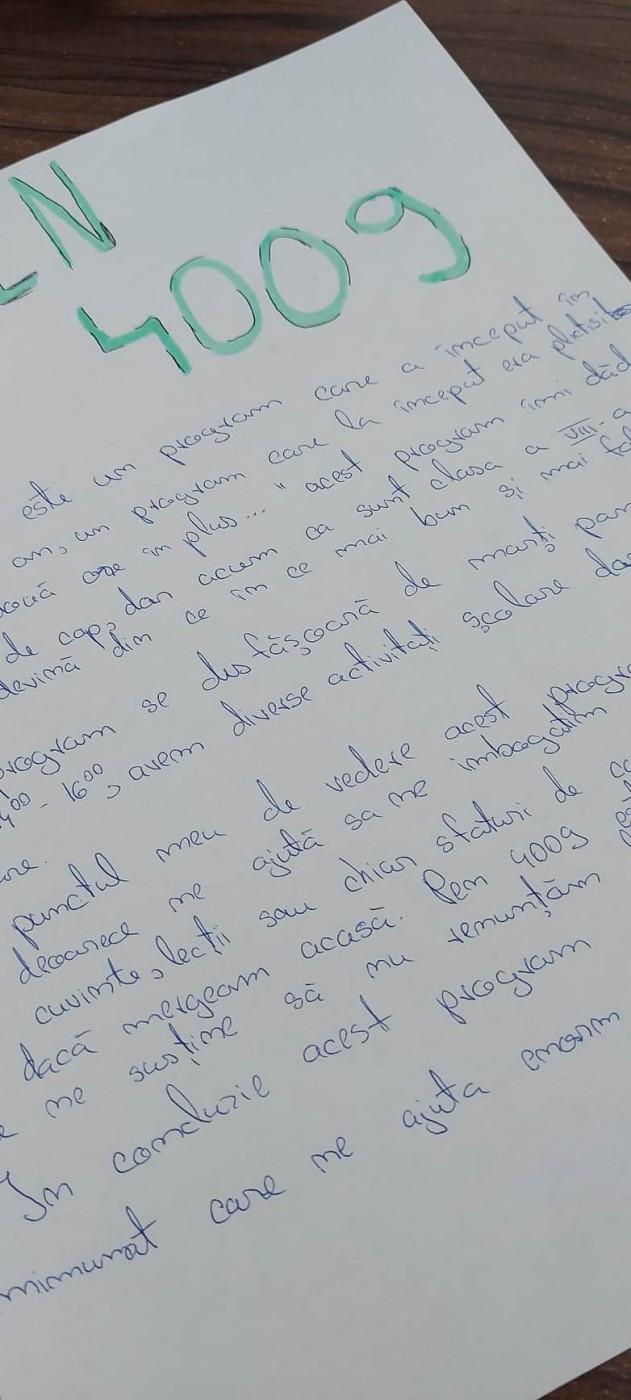 EN
4009
este un program care a început în
an, un program care la început era plictisit
două ore în plus... " acest program îmi dăd
de cap, dar acum ca sunt clasa a VIII-a
devină din ce în ce mai bun și mai fol
program se desfășoară de marți pan
1400 - 1600, avem diverse activitați școlare dar
are.
punctul meu de vedere acest progra
deoarece me ajută sa ne imbogatim
cuvinte, lecții sau chiar sfaturi de ca
dacă mergeam acasă. Pen 4009 est
e ne susține să nu renunțăm
În concluzie acest program
minunat care ne ajuta enorm